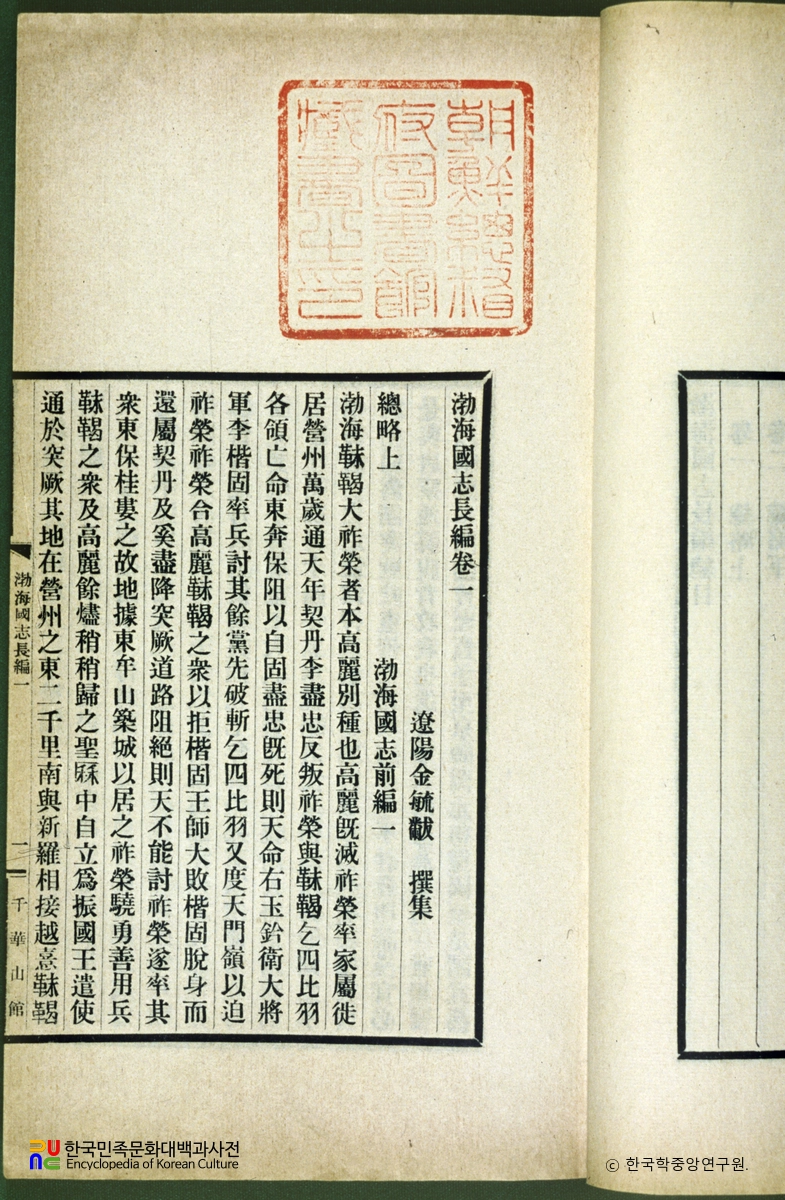 朝鮮總督
府圖書館
藏書之印
渤海國志長編卷一
遼陽金毓黻 撰集
總略上 渤海國志前編一
渤海靺鞨大祚榮者本高麗別種也高麗旣滅祚榮率家屬徙
居營州萬歲通天年契丹李盡忠反叛祚榮與靺鞨乞四比羽
各領亡命東奔保阻以自固盡忠旣死則天命右玉鈐衛大將
軍李楷固率兵討其餘黨先破斬乞四比羽又度天門嶺以迫
祚榮祚榮合高麗靺鞨之衆以拒楷固王師大敗楷固脫身而
還屬契丹及奚盡降突厥道路阻絕則天不能討祚榮遂率其
衆東保桂婁之故地據東牟山築城以居之祚榮驍勇善用兵
靺鞨之衆及高麗餘燼稍稍歸之聖厤中自立爲振國王遣使
通於突厥其地在營州之東二千里南與新羅相接越憙靺鞨
渤海國志長編一
一
千華山館
한국민족문화대백과사전
Encyclopedia of Korean Culture
ⓒ 한국학중앙연구원.